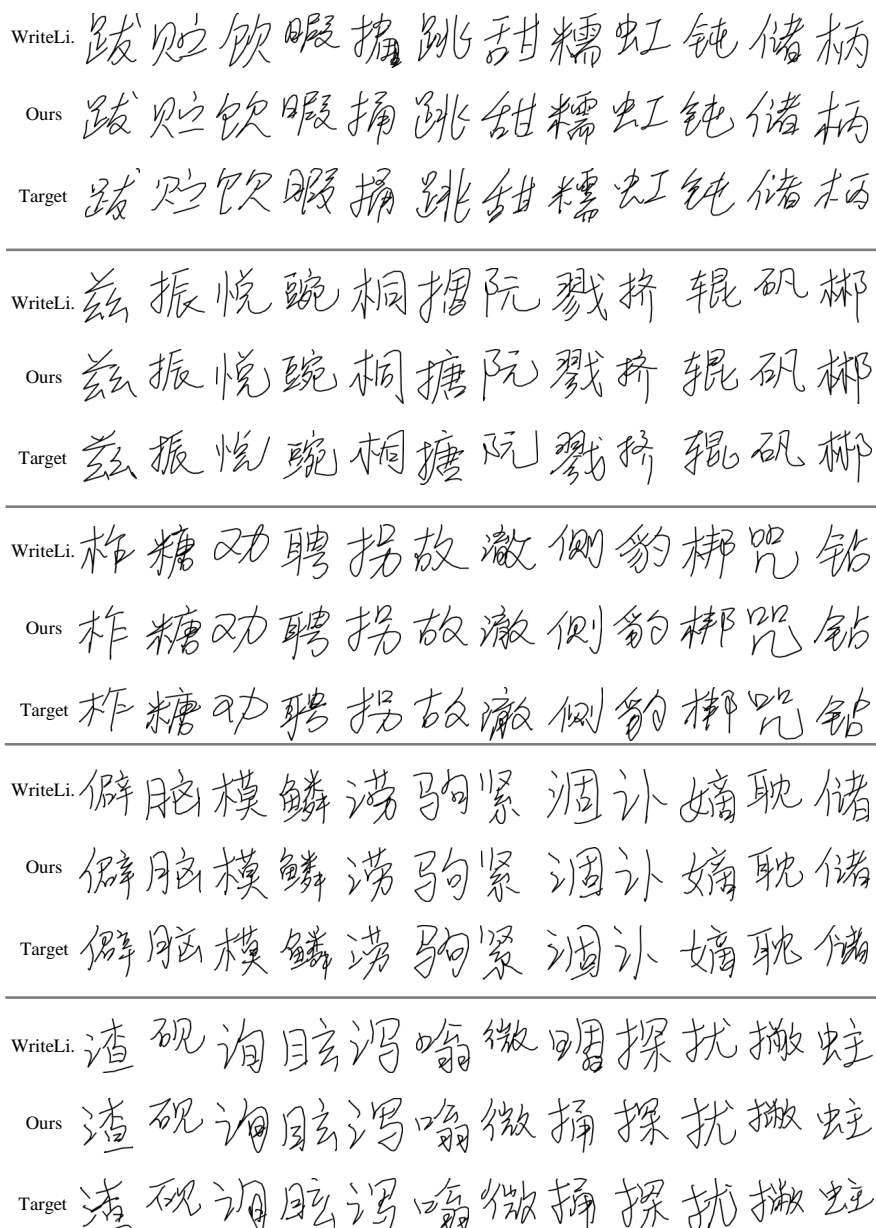 WriteLi. 跋 贮 饮 暇 跳 甜 糯 虹 钝 储 柄
Ours 跋 贮 饮 暇 捅 跳 甜 糯 虹 钝 储 柄
Target 跋 贮 饮 暇 捅 跳 甜 糯 虹 钝 储 柄
WriteLi. 兹 振 悦 豌 桐 阮 戮 挤 辊 矾 郴
Ours 兹 振 悦 豌 桐 搪 阮 戮 挤 辊 矾 郴
Target 兹 振 悦 豌 桐 搪 阮 戮 挤 辊 矾 郴
WriteLi. 柞 糖 劝 聘 拐 故 澈 侧 豹 梆 咒 钻
Ours 柞 糖 劝 聘 拐 故 澈 侧 豹 梆 咒 钻
Target 柞 糖 劝 聘 拐 故 澈 侧 豹 梆 咒 钻
WriteLi. 僻 脑 模 鳞 涝 驹 紧 涸 讣 嫡 耽 储
Ours 僻 脑 模 鳞 涝 驹 紧 涸 讣 嫡 耽 储
Target 僻 脑 模 鳞 涝 驹 紧 涸 讣 嫡 耽 储
WriteLi. 渣 砚 询 眩 泻 嗡 微 探 扰 撇 蛀
Ours 渣 砚 询 眩 泻 嗡 微 捅 探 扰 撇 蛀
Target 渣 砚 询 眩 泻 嗡 微 捅 探 扰 撇 蛀